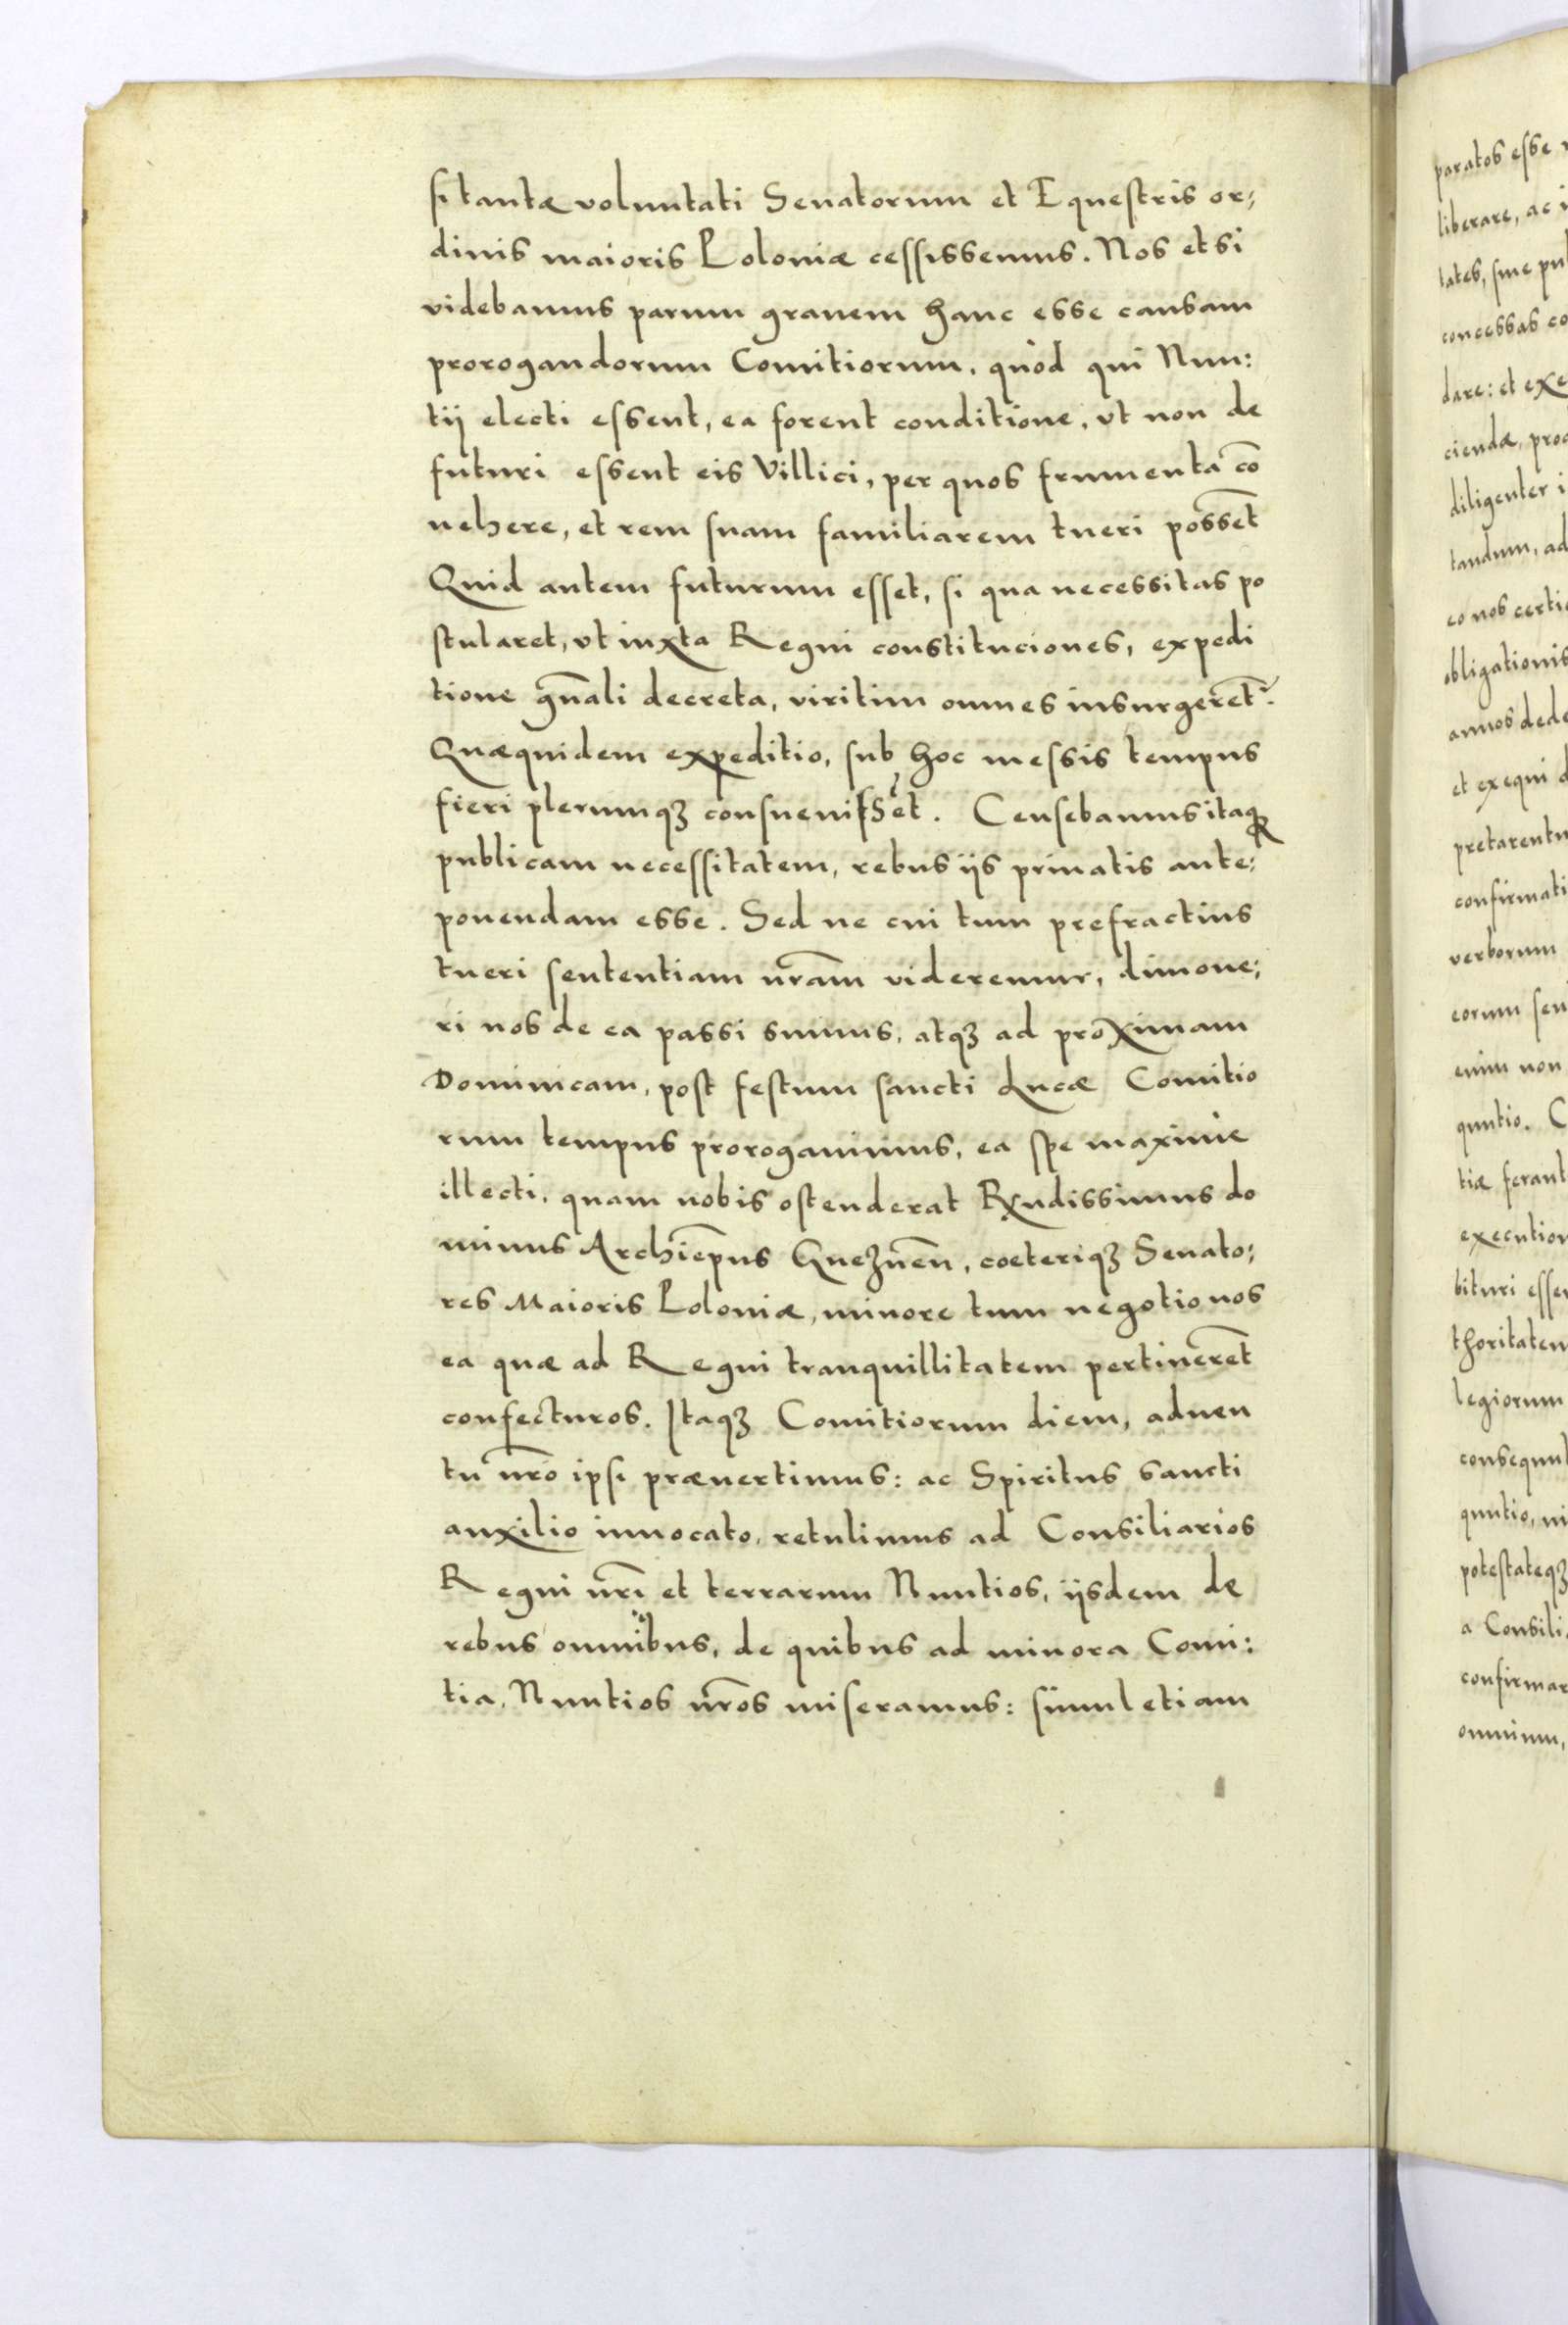 si tantæ voluntati Senatorum et Equestris or,
dinis maioris Poloniæ cessissemus. Nos etsi
videbamus parum grauem hanc esse causam
prorogandorum Comitiorum, quòd qui Nun:
tij electi essent, ea forent conditione, vt non de
futuri essent eis Villici, per quos frumenta cō
uehere, et rem suam familiarem tueri possēt
Quid autem futurum esset, si qua necessitas po
stularet, vt iuxta Regni constituciones, expedi
tione gn̄ali decreta, viritim omnes insurgerēt?
Quæquidem expeditio, sub hoc messis tempus
fieri plerumqꝫ consueuisset. Censebamus itaqꝫ
publicam necessitatem, rebus ijs priuatis ante,
ponendam esse. Sed ne cui tum prefractius
tueri sententiam nr̄am videremur, dimoue,
ri nos de ea passi sumus, atqꝫ ad proximam
Dominicam, post festum sancti Lucæ Comitio
rum tempus prorogauimus, ea spe maxime
illecti, quam nobis ostenderat Rx̄ndissimus do
minus Archiep̄us Gneznēn, coeteriqꝫ Senato,
res Maioris Poloniæ, minore tum negotio nos
ea quæ ad Regni tranquillitatem pertinerēt
confecturos. Itaqꝫ Comitiorum diem, aduen
tu nr̄o ipsi præuertimus: ac Spiritus sancti
auxilio inuocato, retulimus ad Consiliarios
Regni nr̄i et terrarum Nuntios, ijsdem de
rebus omnibus, de quibus ad minora Comi:
tia, Nuntios nr̄os miseramus: simul etiam
paratos esse
liberare, ac i
tates, siue pu
concessas co
dare: et exe
ciendæ, pro
diligenter i
tandum, ad
eo nos certi
obligationis
annos dede
et exequi d
pretarentu
confirmati
verborum
eorum sen
enim non
quntio. C
tiæ ferant
execution
bituri esse
thoritatem
legiorum
consequnt
quntio, ni
potestateqꝫ
a Consili
confirmar
omnium,